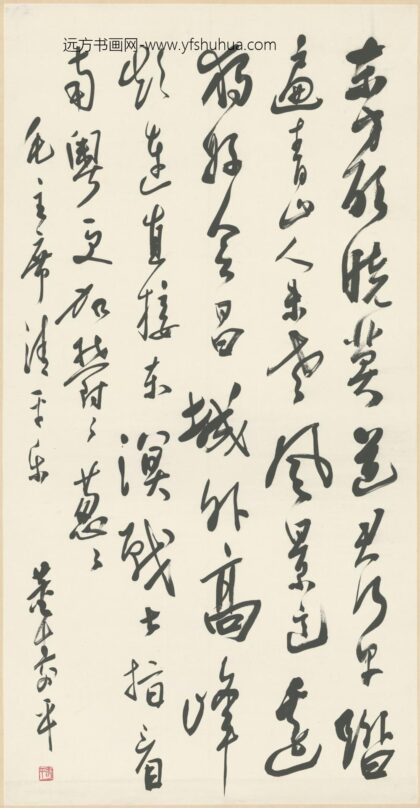 远方书画网-www.yfshuhua.com
东方欲晓莫道君行早踏
遍青山人未老风景这边
独好会昌城外高峰
颠连直接东溟战士指看
南粤更加郁々葱々
毛主席清平乐
董寿平